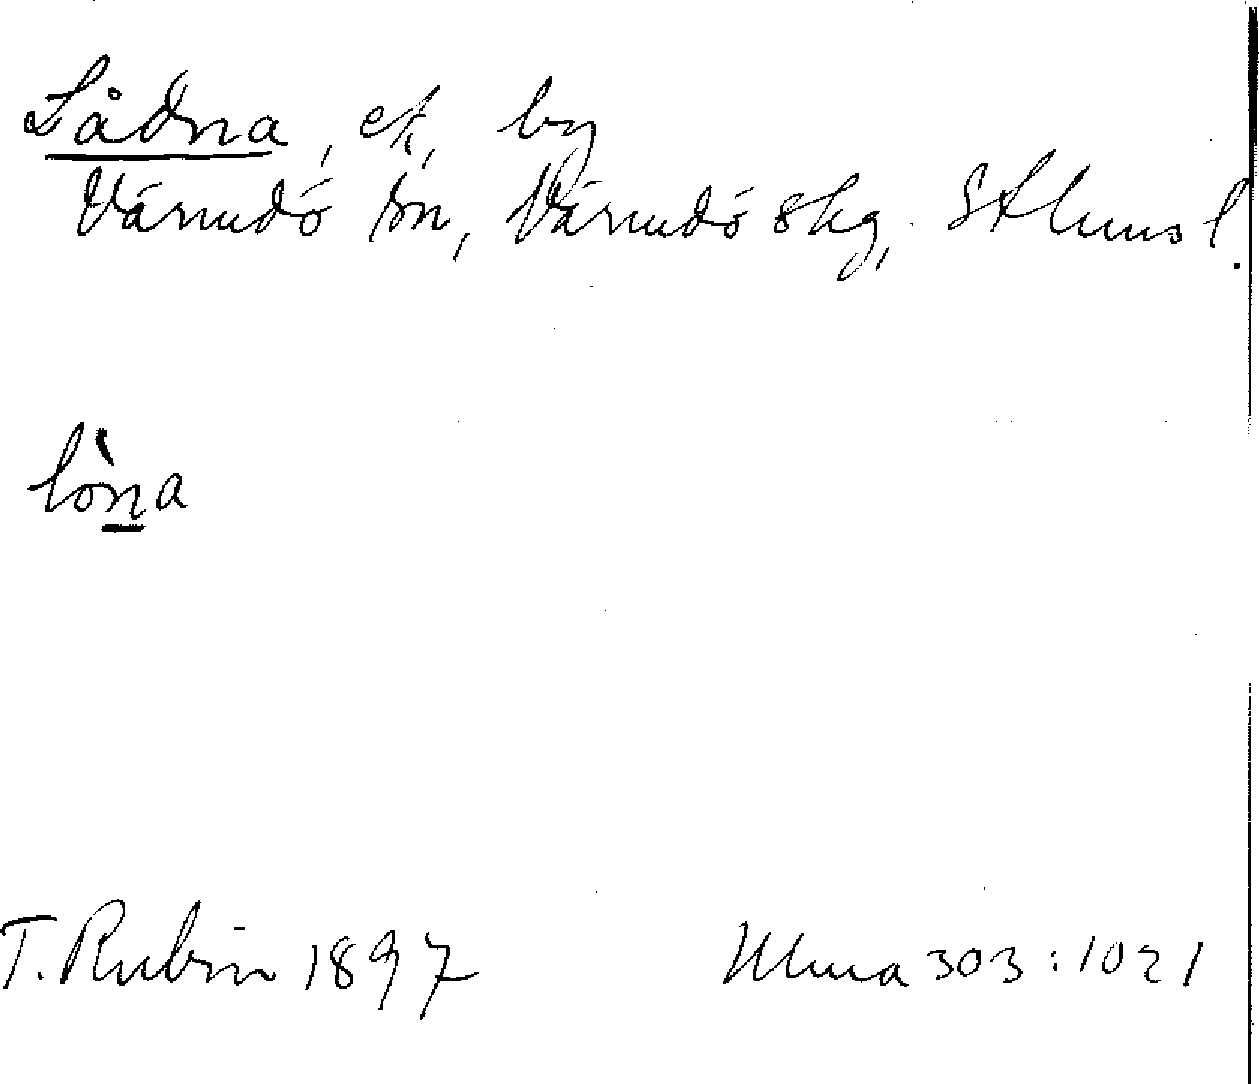 Lådna, ek, by
Värmdö sn, Värmdö skg, Sthms l.
lòna
T. Rubin 1897 Ulma 303:1021